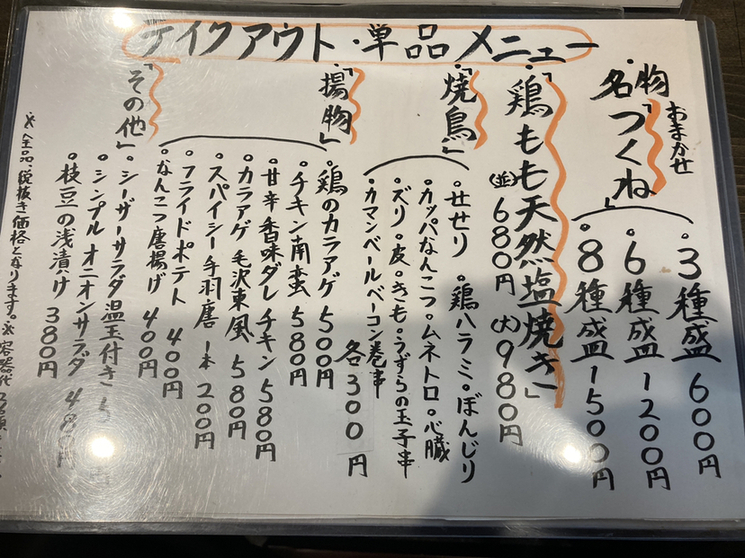 テイクアウト・単品メニュー
・名物「つくね」
おまかせ
・3種盛 600円
・6種盛 1200円
・8種盛 1500円
・「鶏もも天然塩焼き」
(並)680円 (大)980円
「焼鳥」
・せせり・鶏ハラミ・ぼんじり
・カッパなんこつ・ムネトロ・心臓
・ズリ・皮・きも・うずらの玉子串
・カマンベールベーコン巻串
各300円
「揚物」
・鶏のカラアゲ 500円
・チキン南蛮 580円
・甘辛香味ダレチキン 580円
・カラアゲ毛沢東風 580円
・スパイシー手羽唐 1本 200円
・フライドポテト 400円
・なんこつ唐揚げ 400円
「その他」
・シーザーサラダ温玉付き 5 円
・シンプルオニオンサラダ 480円
・枝豆の浅漬け 380円
※全品・税抜き価格となります。※容器代